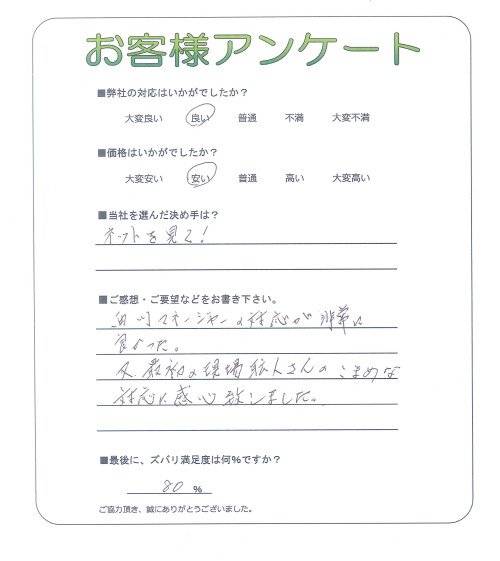 お客様アンケート
■弊社の対応はいかがでしたか？
大変良い 良い 普通 不満 大変不満
■価格はいかがでしたか？
大変安い 安い 普通 高い 大変高い
■当社を選んだ決め手は？
ネットを見て！
■ご感想・ご要望などをお書き下さい。
川マネージャーの対応が非常に
良かった。
又、最初の現場職人さんのこまめな
対応に感心致しました。
■最後に、ズバリ満足度は何%ですか？
80 %
ご協力頂き、誠にありがとうございました。